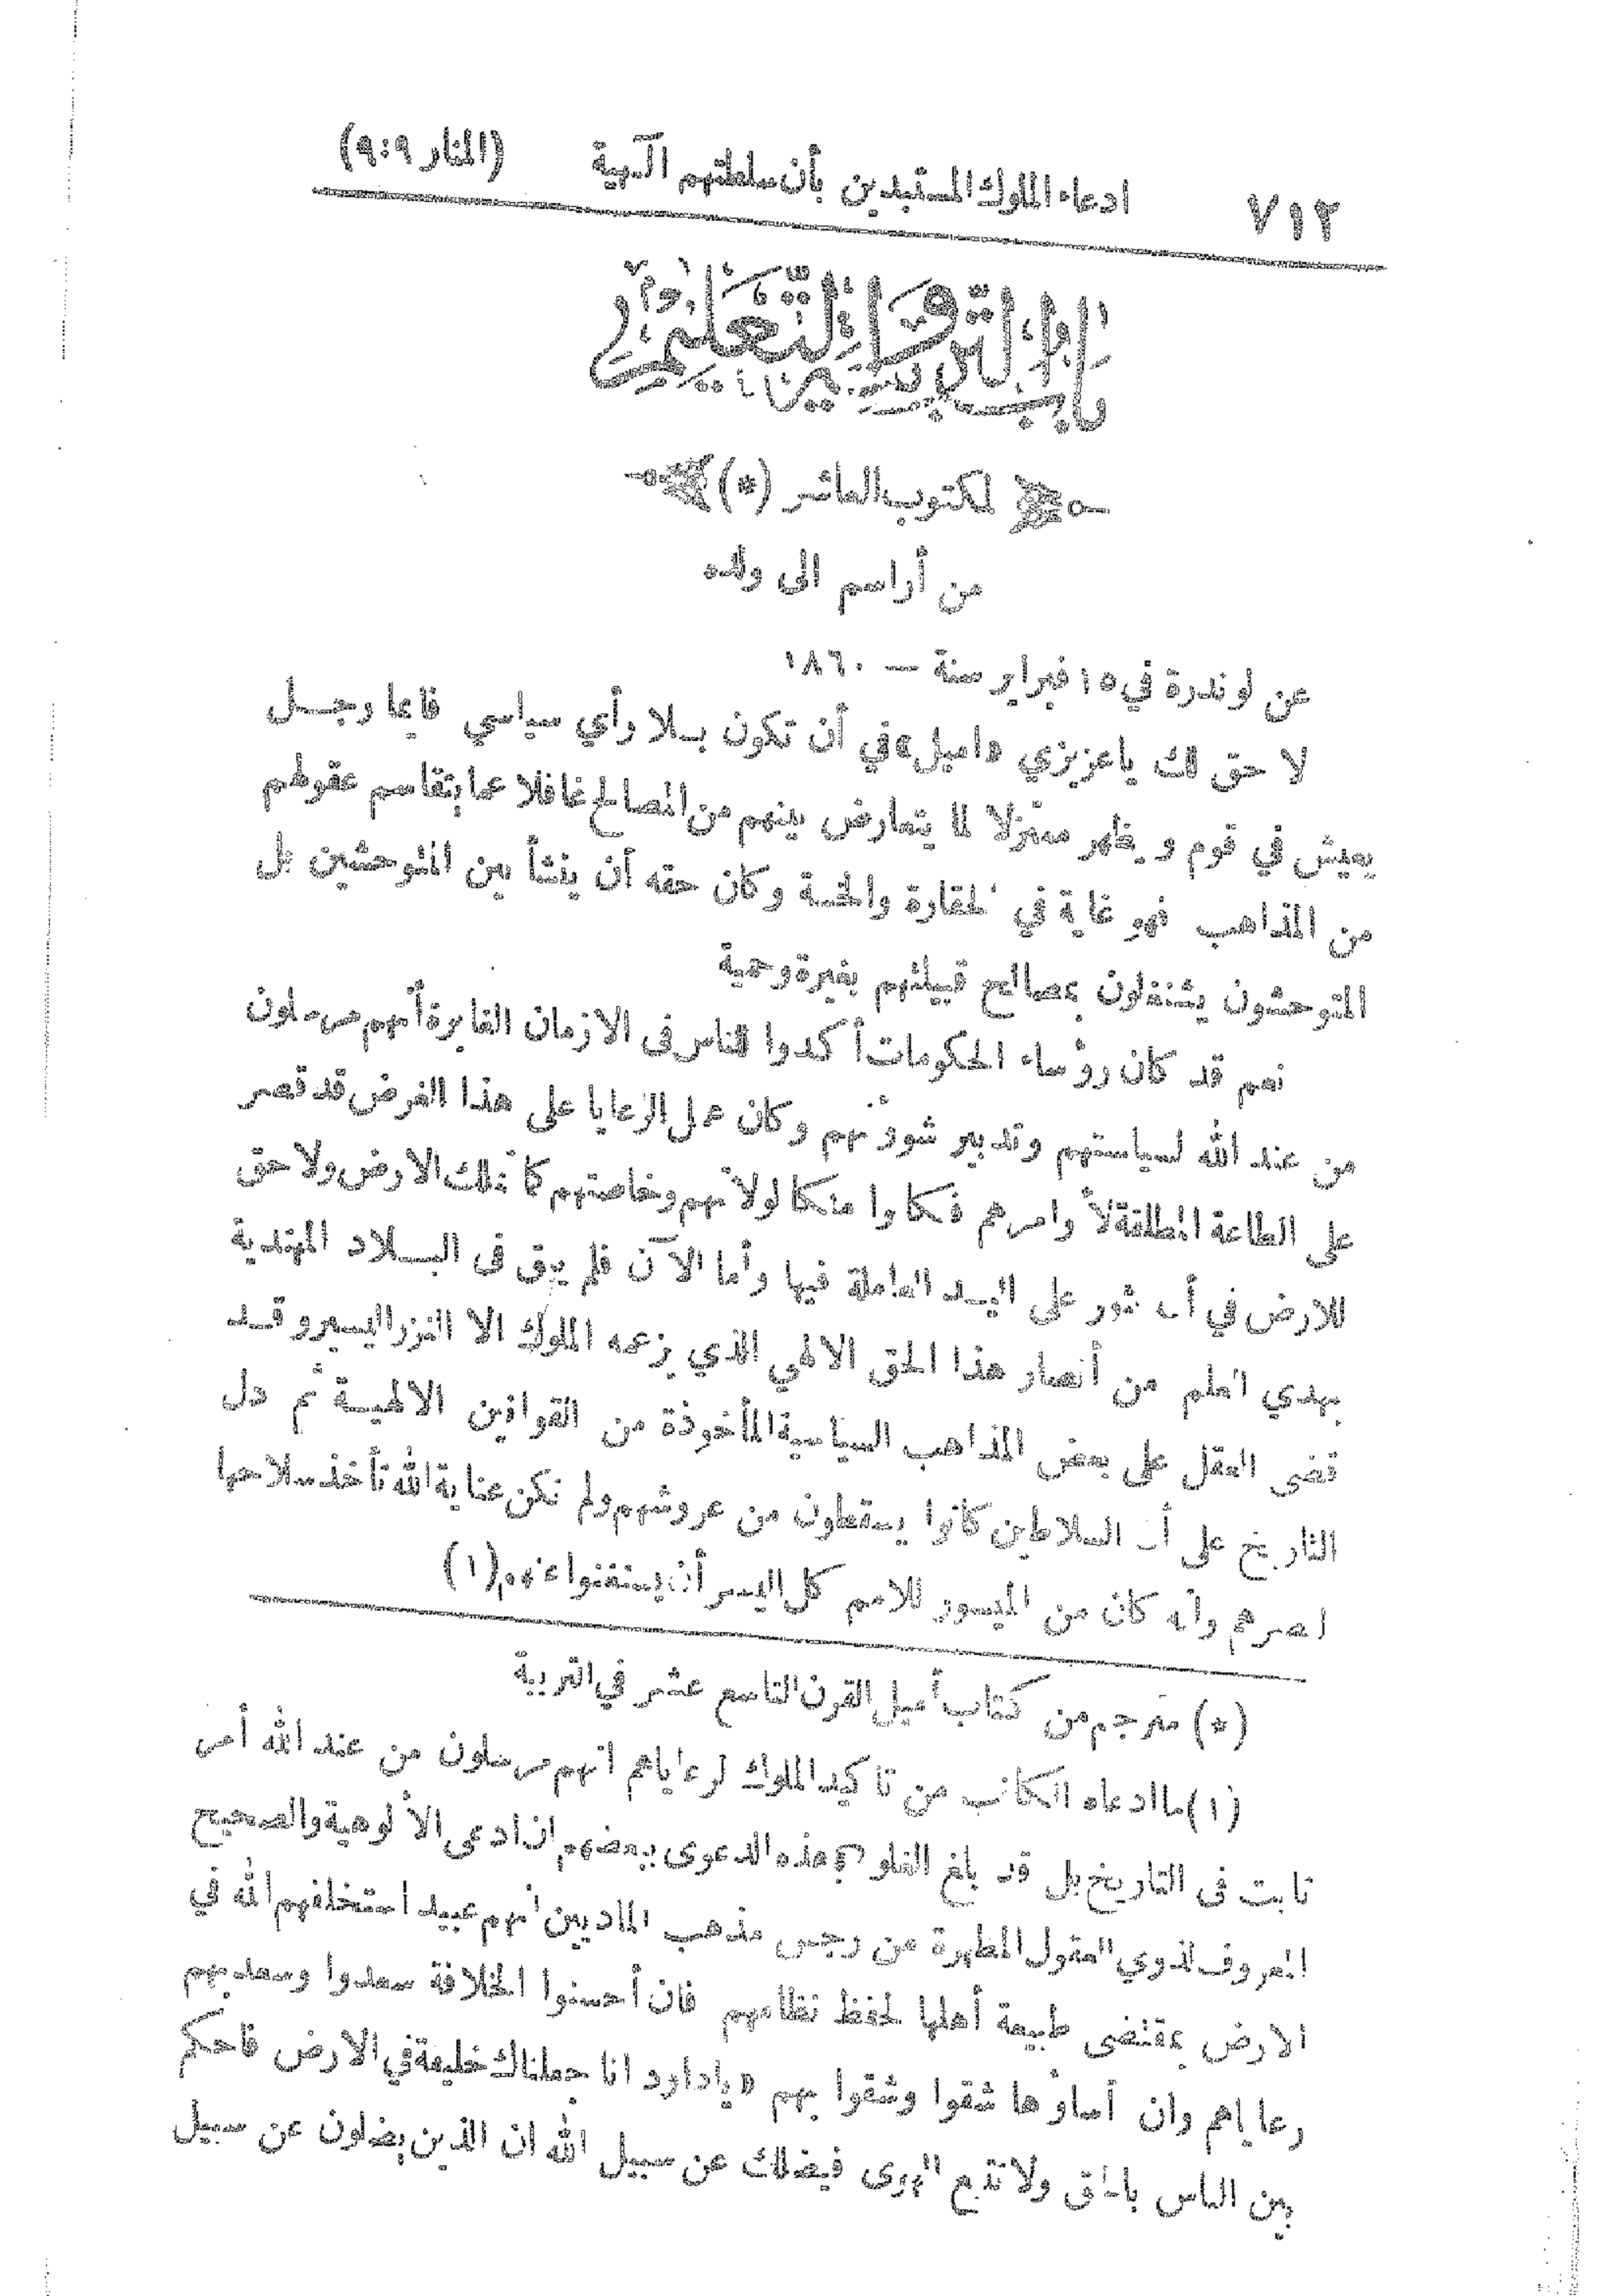 ٧١٢ ادعاء الملوك المستبدين بأن سلطتهم آلهية (المنار ٩:٩)
باب التربية والتعليم
المكتوب العاشر (*)
من أراسم الى ولده
عن لوندرة في ١٥ فبراير سنة — ١٨٦٠
لا حق لك ياعزيزي «اميل» في أن تكون بلا رأي سياسي فايما رجل
يعيش في قوم ويظهر معتزلا لما يتعارض بينهم من المصالح غافلا عما يتقاسم عقولهم
من المذاهب فهو غاية في الحقارة والخسة وكان حقه أن ينشأ بين المتوحشين بل
المتوحشون يشتغلون بمصالح قبيلتهم بغيرة وحمية
نعم قد كان رؤساء الحكومات أكدوا للناس فى الازمان الغابرة أنهم مرسلون
من عند الله لسياستهم وتدبير شوؤنهم وكان عمل الرعايا على هذا الغرض قد قصر
على الطاعة المطلقة لأوامرهم فكانوا ملكا لولاتهم وخاصتهم كما تملك الارض ولا حق
للارض في أن تثور على اليد العاملة فيها وأما الآن فلم يبق فى البلاد المهتدية
بهدي العلم من أنصار هذا الحق الالهي الذي يزعمه الملوك الا النزر اليسير وقد
قضى العقل على بعض المذاهب السياسية المأخوذة من القوانين الالهية ثم دل
التاريخ على أن السلاطين كانوا يسقطون من عروشهم ولم تكن عناية الله تأخذ سلاحها
لنصرهم وأنه كان من الميسور للامم كل اليسر أن يستغنوا عنهم (١)
(*) مترجم من كتاب أميل القرن التاسع عشر في التربية
(١) ما ادعاه الكاتب من تأكيد الملوك لرعاياهم انهم مرسلون من عند الله أمر
ثابت فى التاريخ بل قد بلغ الغلو في هذه الدعوى ببعضهم ان ادعى الألوهية والصحيح
المعروف لذوي العقول المطهرة من رجس مذهب الماديين انهم عبيد استخلفهم الله في
الارض بمقتضى طبيعة أهلها لحفظ نظامهم فان أحسنوا الخلافة سعدوا وسعد بهم
رعاياهم وان أساؤها شقوا وشقوا بهم «ياداود انا جعلناك خليفة في الارض فاحكم
بين الناس بالحق ولا تتبع الهوى فيضلك عن سبيل الله ان الذين يضلون عن سبيل